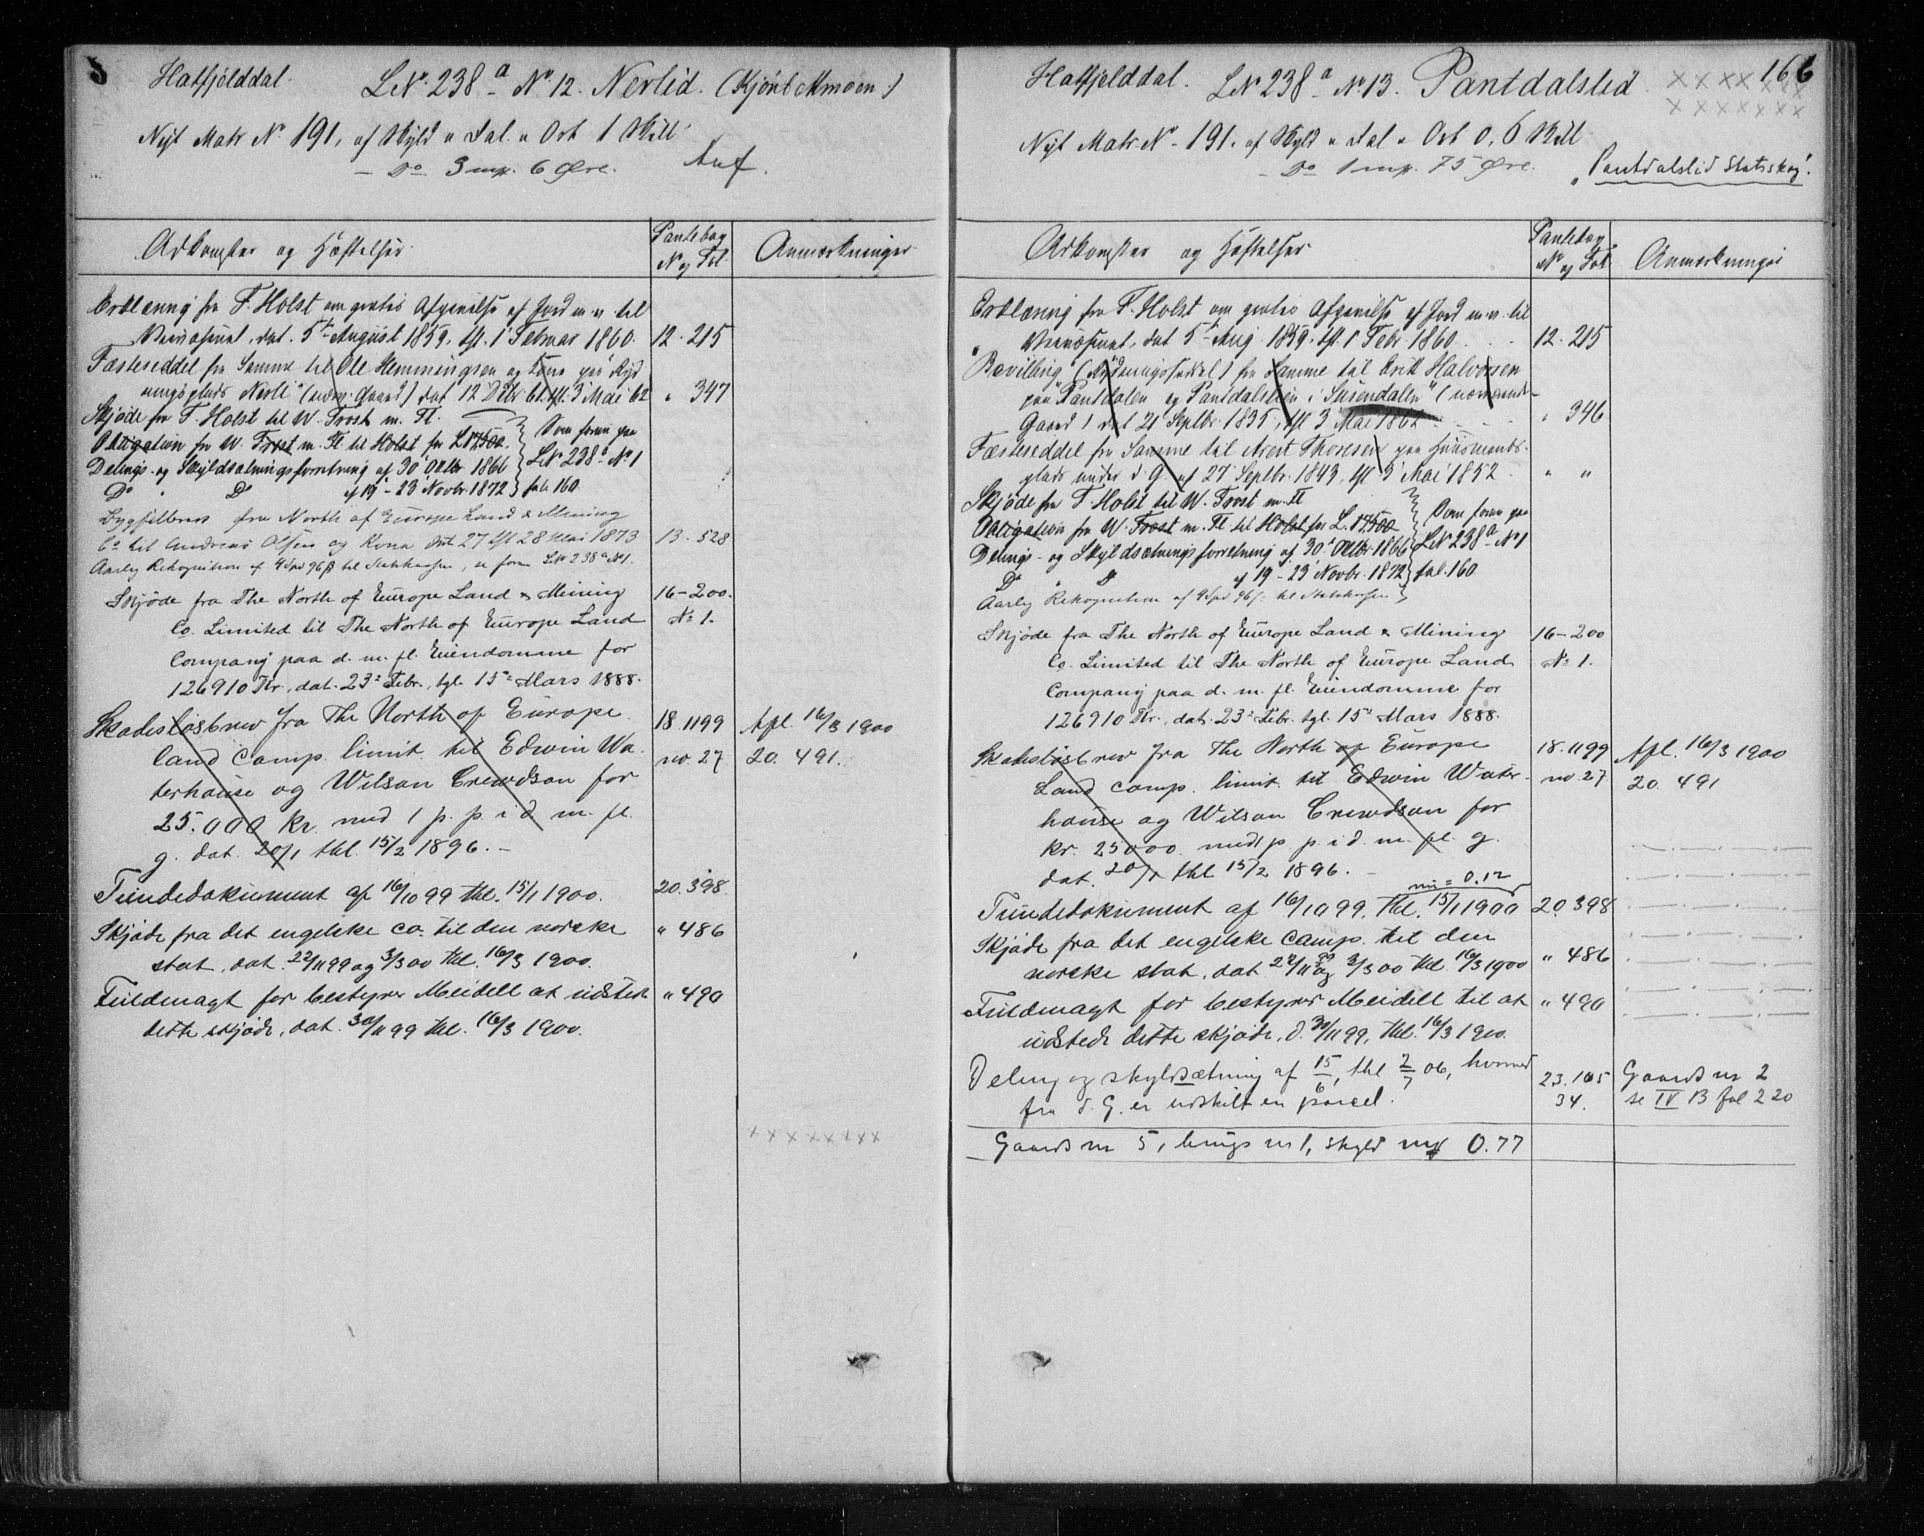 Hatfjelddal. L.Nº 238ª Nº 12. Nerlid. (Kjønt Almoen.)
Nyt Matr Nº 191, af Skyld " Dal. " Ort 1 Skill
- Dº 3 mrk. 6 Øre.
Adkomster og Hæftelser
Pantebog
Nº og Fol
Anmærkninger
Erklæring fra F. Holst om gratis Afgivelse af Jord m. v. til
dat. 5te August 1859, tgl. 1 Februar 1860. 12. 215
Fæsteseddel fra Samme til Ole Hemmingsen og Kone paa Ryd
ningsplads Nerli (nærv. Gaard) dat 12 Dcbr 61. tgl. 3 Mai 62 " 347
Skjøde fra F. Holst til W. Frost m. Fl.
Obligation fra W. Frost m. Fl til Holst for L. 17500. Som foran paa
Delings- og Skyldsætningsforretning af 30' Octbr 1866 L.Nº 238ª Nº 1
Dº " Dº af 19'-23' Novbr. 1872 fol. 160
Bygselbrev fra North of Europe Land & Mining
Cº til Andreas Olsen og Kona dat 27 tgl 28 Mai 1873 13. 528
Aarlig Rekognition af 4 Spd 96 β til Statskassen, se foran L.Nº 238ª Nº 1.
Skjøde fra The North of Europe Land & Mining 16-200.
Co. Limited til The North of Europe Land Nº 1.
Company paa d. m. fl. Eiendomme for
126910 Kr., dat. 23de Febr., tgl. 15de Mars 1888.
Skadesløsbrev fra The North of Europe 18 1199 Afl. 16/3 1900
land Comp. limit. til Edwin Wa- no. 27 20. 491.
terhouse og Wilson Crewdson for
25.000 kr. med 1 p. p i d. m. fl.
g. dat. 20/1 thl. 15/2 1896. -
Fundedokument af 16/10 99 thl. 15/1 1900. 20. 398
Skjøde fra det engelske co. til den norske " 486
stat, dat. 22/11 99 og 3/3 00 thl. 16/3 1900.
Fuldmagt for bestyrer Meidell at udstede " 490
dette skjøde, dat. 30/11 99 thl. 16/3 1900.
x x x x x x x x
Hatfjelddal. L.Nº 238ª Nº 13. Pantdalslid x x x x x x x 166
x x x x x x x
Nyt Matr Nº - 191. af Skyld " Dal " Ort 0,6 Skill
- Dº 1 mrk. 75 Øre. "Pantdalslid Statsskog".
Adkomster og Hæftelser
Pantebog
Nº og Fol
Anmærkninger
Erklæring fra F. Holst om gratis Afgivelse af Jord m. v. til
dat 5te Aug. 1859. tgl. 1 Febr 1860. 12. 215
Bevilling (Rydningsseddel) fra Samme til Erik Halvorsen
paa "Pantdalen og Pantdalslien i Susendalen" (nærværende
Gaard) dat 21 Septbr. 1835, tgl 3 Mai 1862 " 346
Fæsteseddel fra Samme til Arent Thoresen paa Huusmands-
plads under d. G. af 27 Septbr. 1843, tgl 3 Mai 1852 " "
Skjøde fra F. Holst til W. Frost m. Fl
Obligation fra W. Frost m. Fl til Holst for L. 17500 Som foran paa
Delings- og Skyldsætningsforretning af 30' Octbr 1866 L.Nº 238ª Nº 1
Dº " Dº af 19'-23' Novbr. 1872 fol. 160
Aarlig Rekognition af 4 Spd 96 β. til Statskassen
Skjøde fra The North of Europe Land & Mining 16-200
Co. Limited til The North of Europe Land Nº 1.
Company paa d. m. fl. Eiendomme for
126910 Kr., dat. 23de Febr. tgl. 15de Mars 1888.
Skadesløsbrev fra The North of Europe 18. 1199 Afl. 16/3 1900
Land comp. limit. til Edwin Water- no. 27 20. 491
house og Wilson Crewdson for
kr. 25000. med 1 p p i d. m. fl. g.
dat. 20/1 thl 15/2 1896. -
m = 0.12
Fundedokument af 16/10 99. thl. 15/1 1900 20. 398
Skjøde fra det engelske comp. til den
norske stat, dat 22/11 99 og 3/3 00 thl 16/3 1900 " 486
Fuldmagt for bestyrer Meidell til at " 490
udstede dette skjøde, d. 30/11 99, thl. 16/3 1900.
Deling og skyldsætning af 15/6, thl 2/7 06, hvorved 23. 105 Gaards nr 2
fra d. G. er udskilt en parcel. 34. se IV B fol 220
Gaards nr 5, brugs nr 1, skyld mrk 0.77